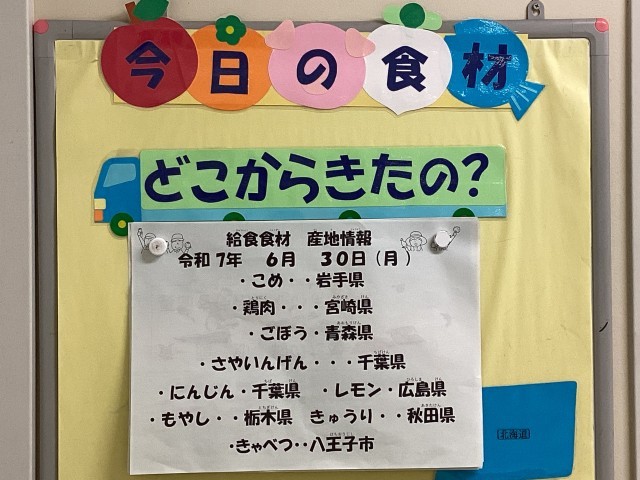 今日の食材
どこからきたの?
給食食材 産地情報
令和7年 6月 30日(月)
・こめ・・岩手県
・鶏肉・・・宮崎県
・ごぼう・青森県
・さやいんげん・・・千葉県
・にんじん・千葉県 ・レモン・広島県
・もやし・・栃木県 きゅうり・・秋田県
・きゃべつ・・八王子市
北海道